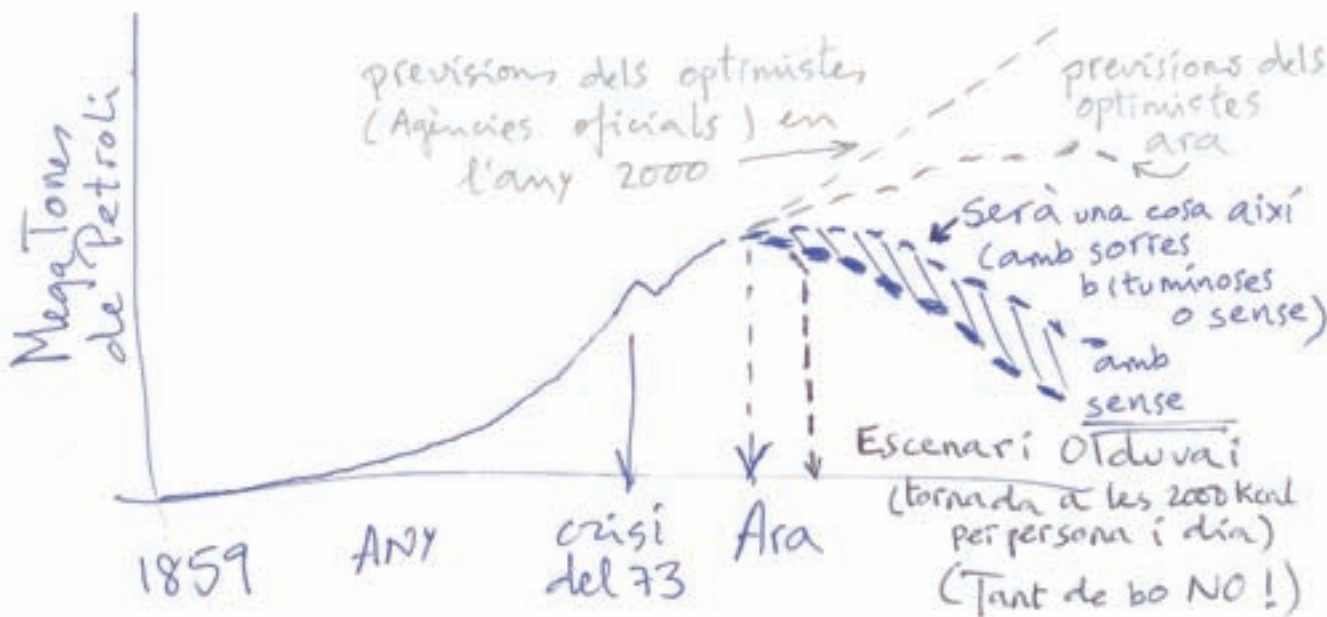 MegaTones
de Petroli
previsions dels optimistes
(Agències oficials) en
l'any 2000
previsions dels
optimistes
ara
Serà una cosa així
(amb sorres
bituminoses
o sense)
amb
sense
Escenari Olduvai
(tornada a les 2000 kcal
per persona i dia)
(Tant de bo NO!)
1859
ANY
crisi
del 73
Ara